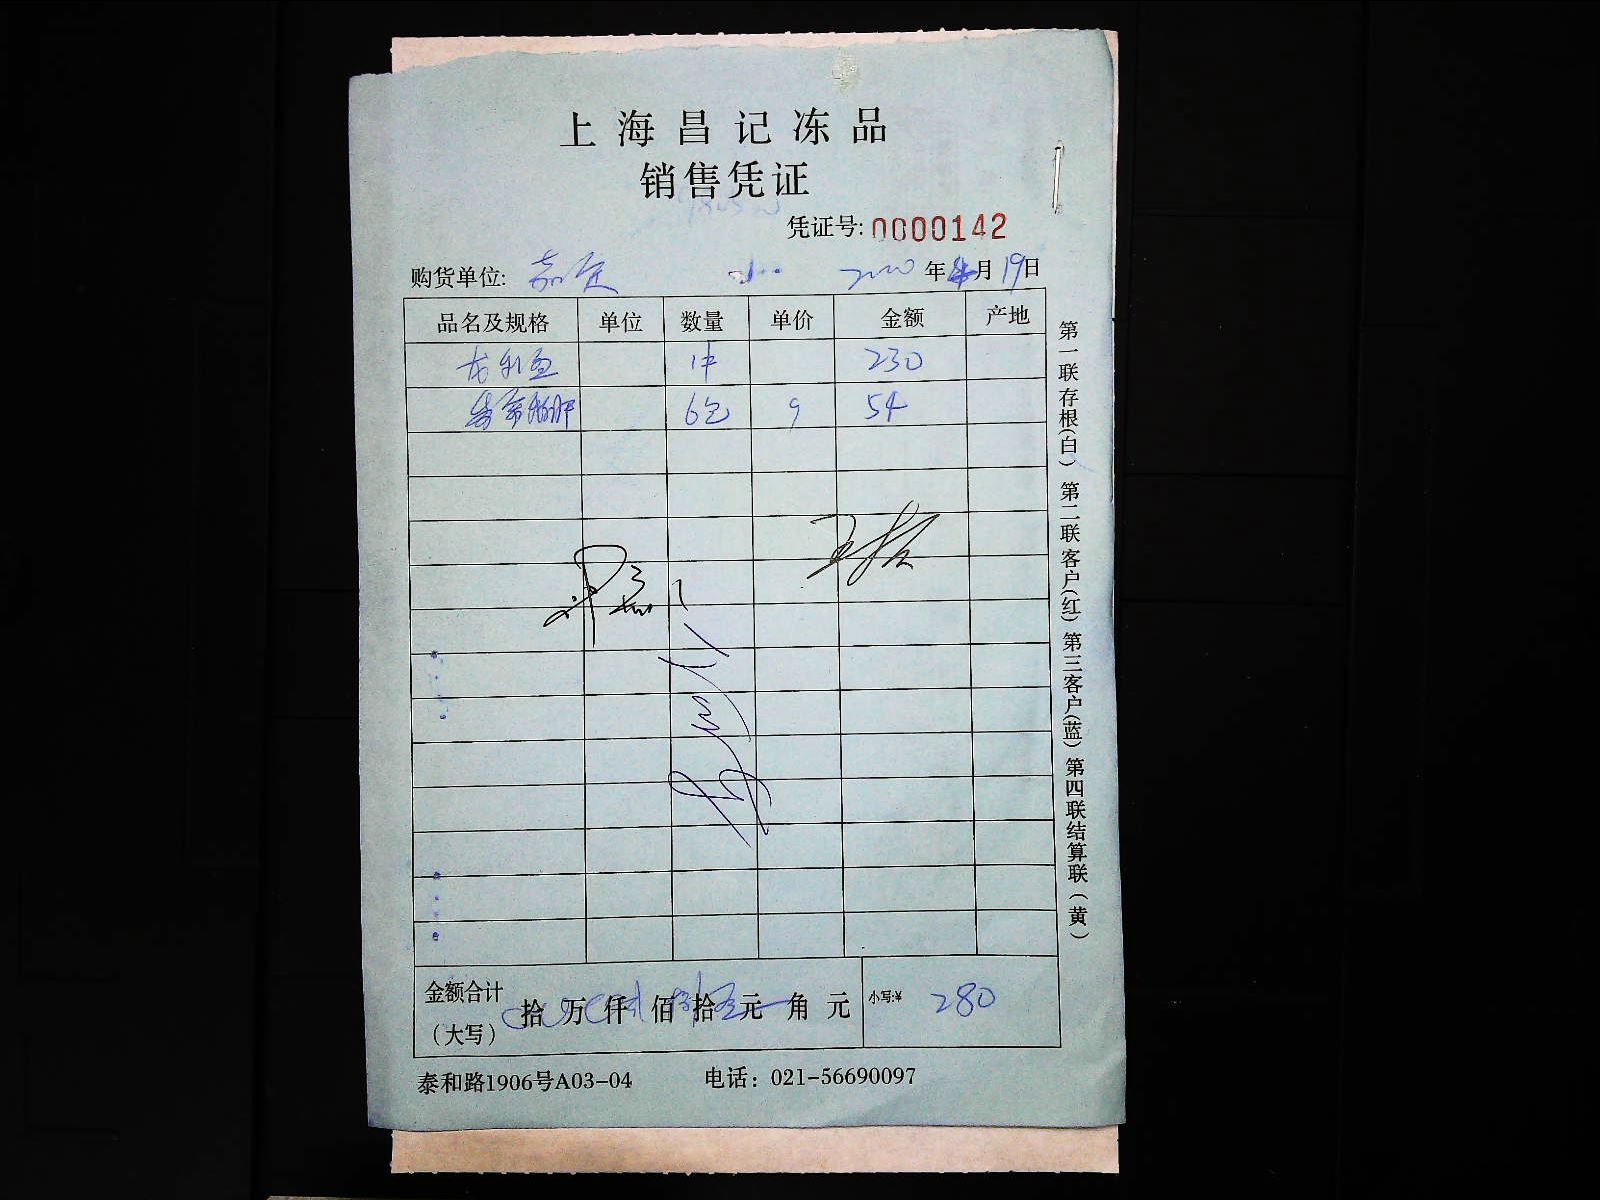 上海昌记冻品
销售凭证
凭证号: 0000142
购货单位: 嘉定 2020年4月19日
品名及规格 单位 数量 单价 金额 产地
龙利鱼 1件 230
6包 9 54
金额合计（大写） 拾 万 仟 佰 拾 元 角 元 小写:¥ 280
泰和路1906号A03-04 电话：021-56690097
第一联存根(白) 第二联客户(红) 第三客户(蓝) 第四联结算联(黄)